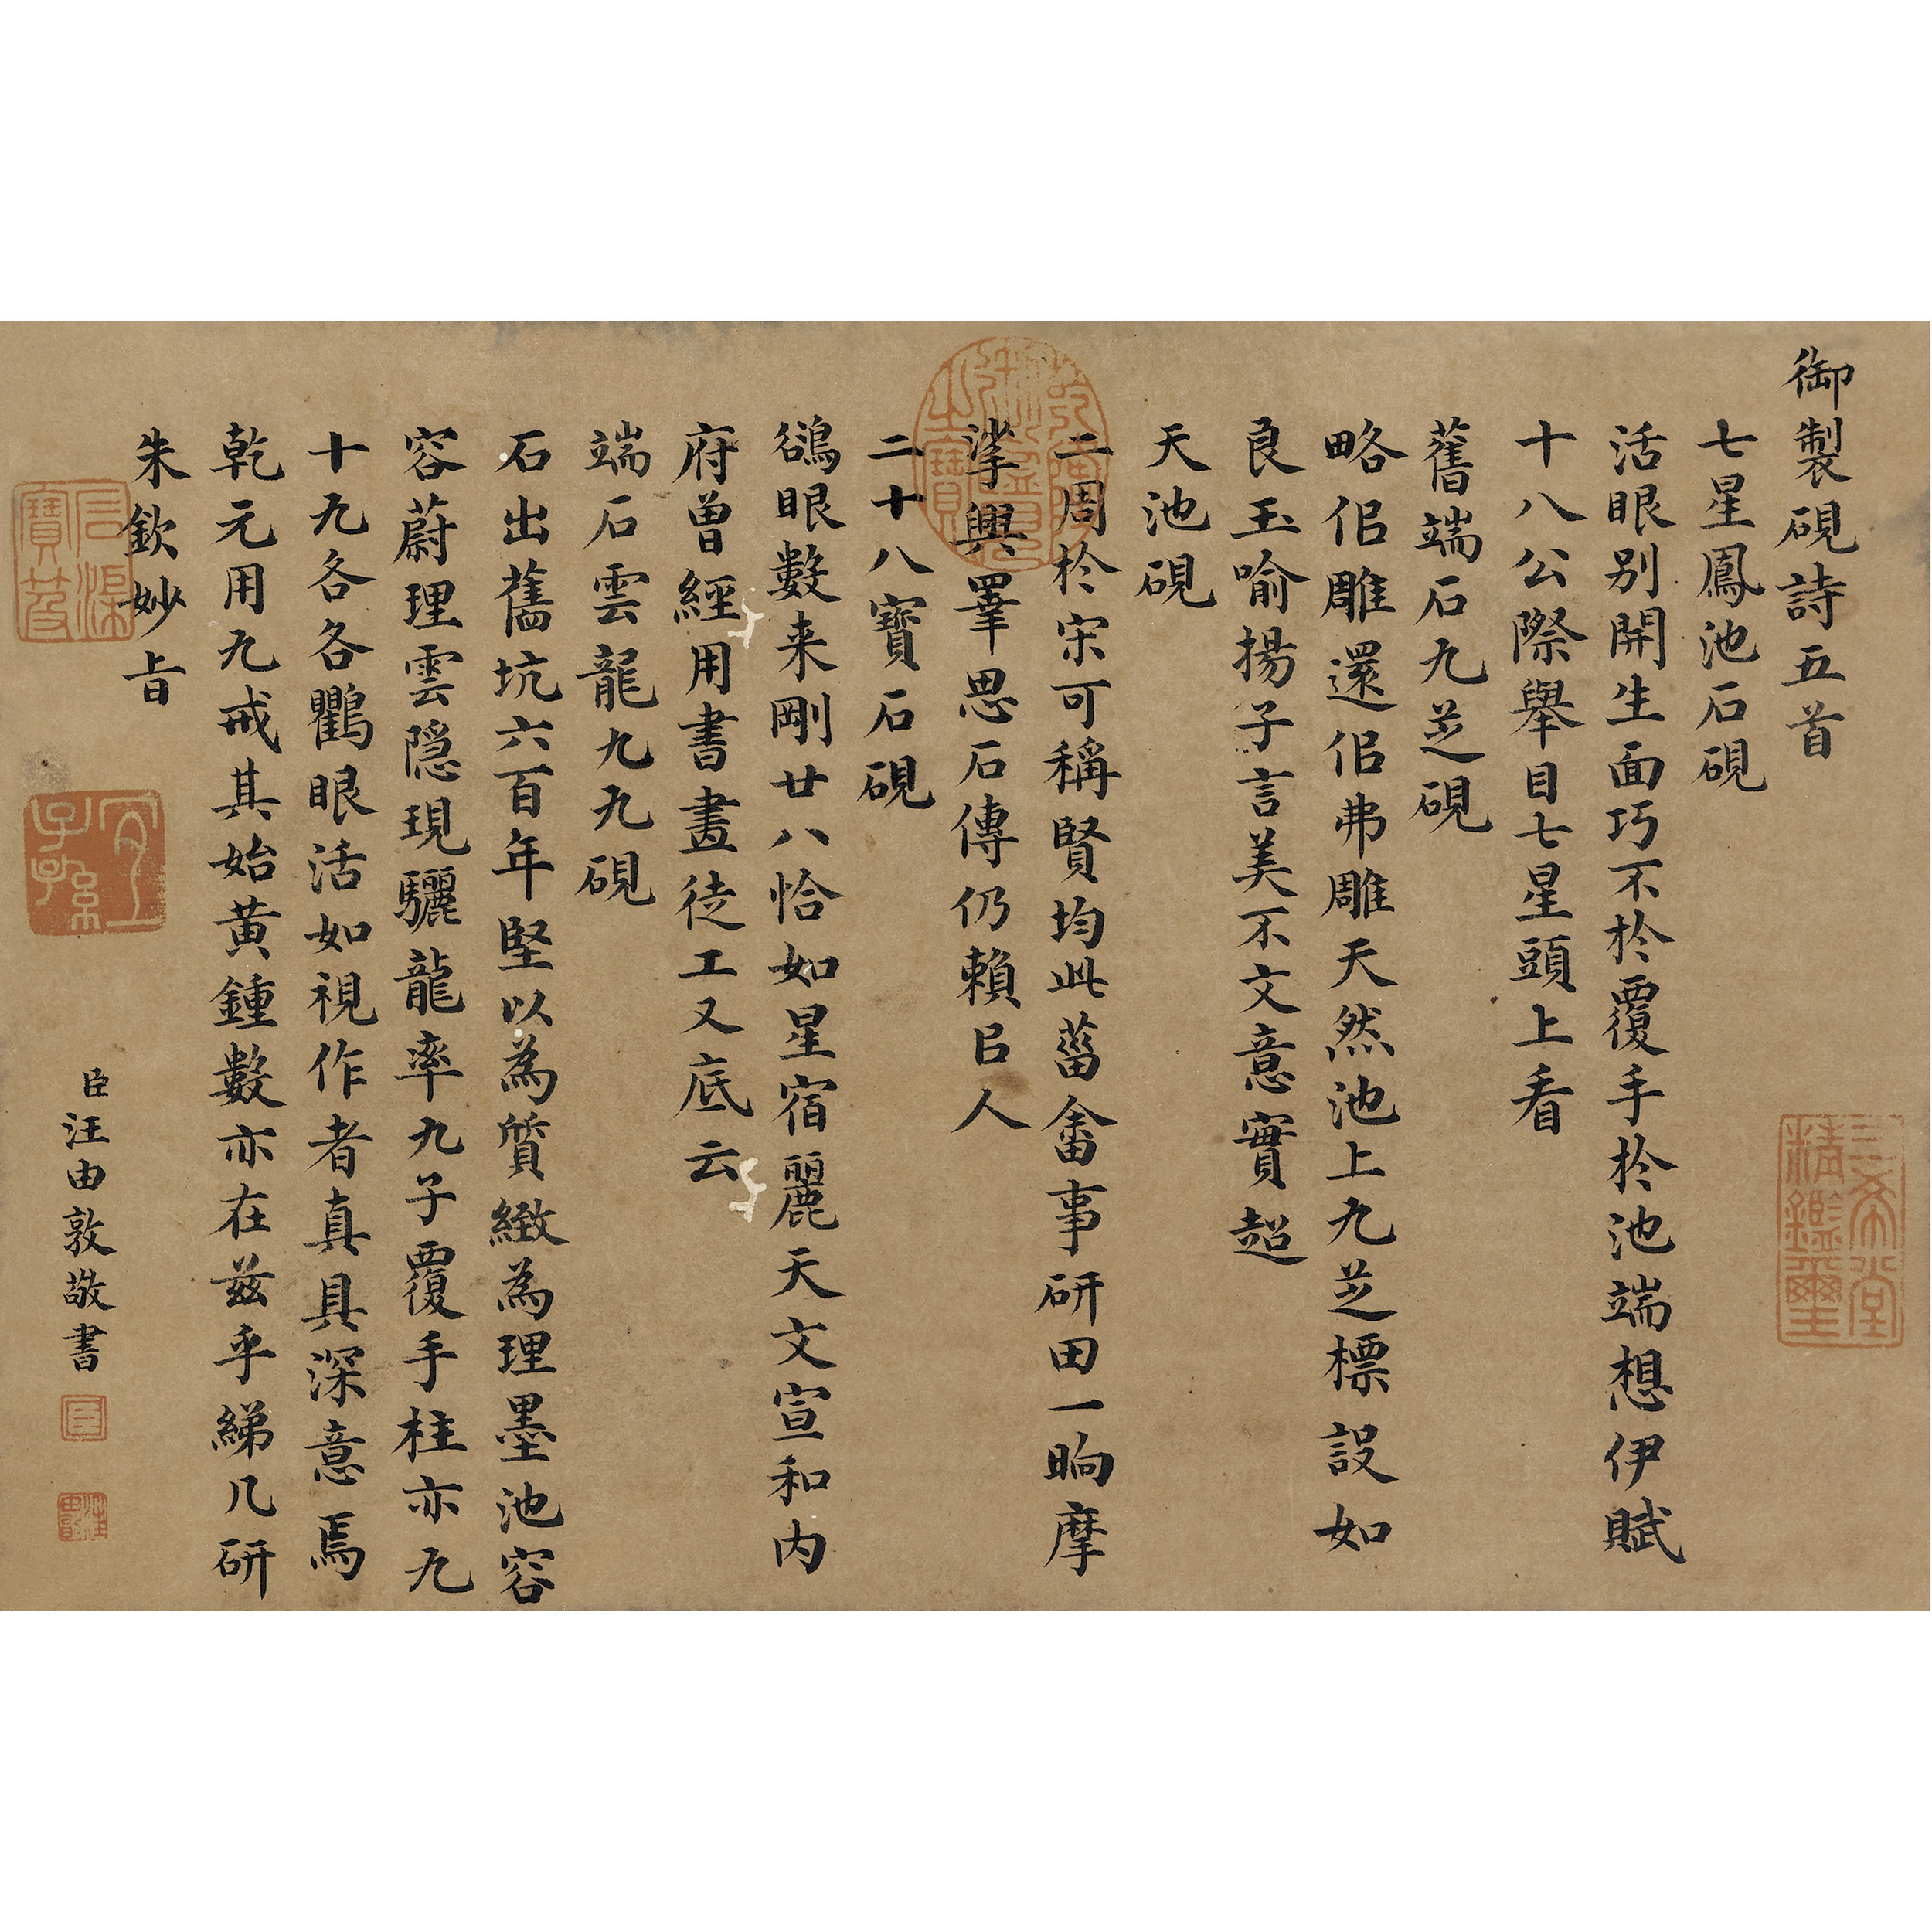 御製硯詩五首
七星鳳池石硯
活眼別開生面巧不於覆手於池端想伊賦
十八公際舉目七星頭上看
舊端石九芝硯
略侶雕還侶弗雕天然池上九芝標設如
良玉喻揚子言美不文意實超
天池硯
二周於宋可稱賢均此菑畬事研田一晌摩
挲興罣思石傳仍賴㠯人
二十八寶石硯
鵒眼數来剛廿八恰如星宿麗天文宣和内
府曾經用書畫徒工又底云
端石雲龍九九硯
石出舊坑六百年堅以為質緻為理墨池容
容蔚理雲隱現驪龍率九子覆手柱亦九
十九各各鸜眼活如視作者真具深意焉
乾元用九戒其始黃鍾數亦在茲乎綈几研
朱欽妙旨
臣汪由敦敬書
三希堂精鑑璽
宜子孫
石渠寶笈
乾隆御覽之寶
臣